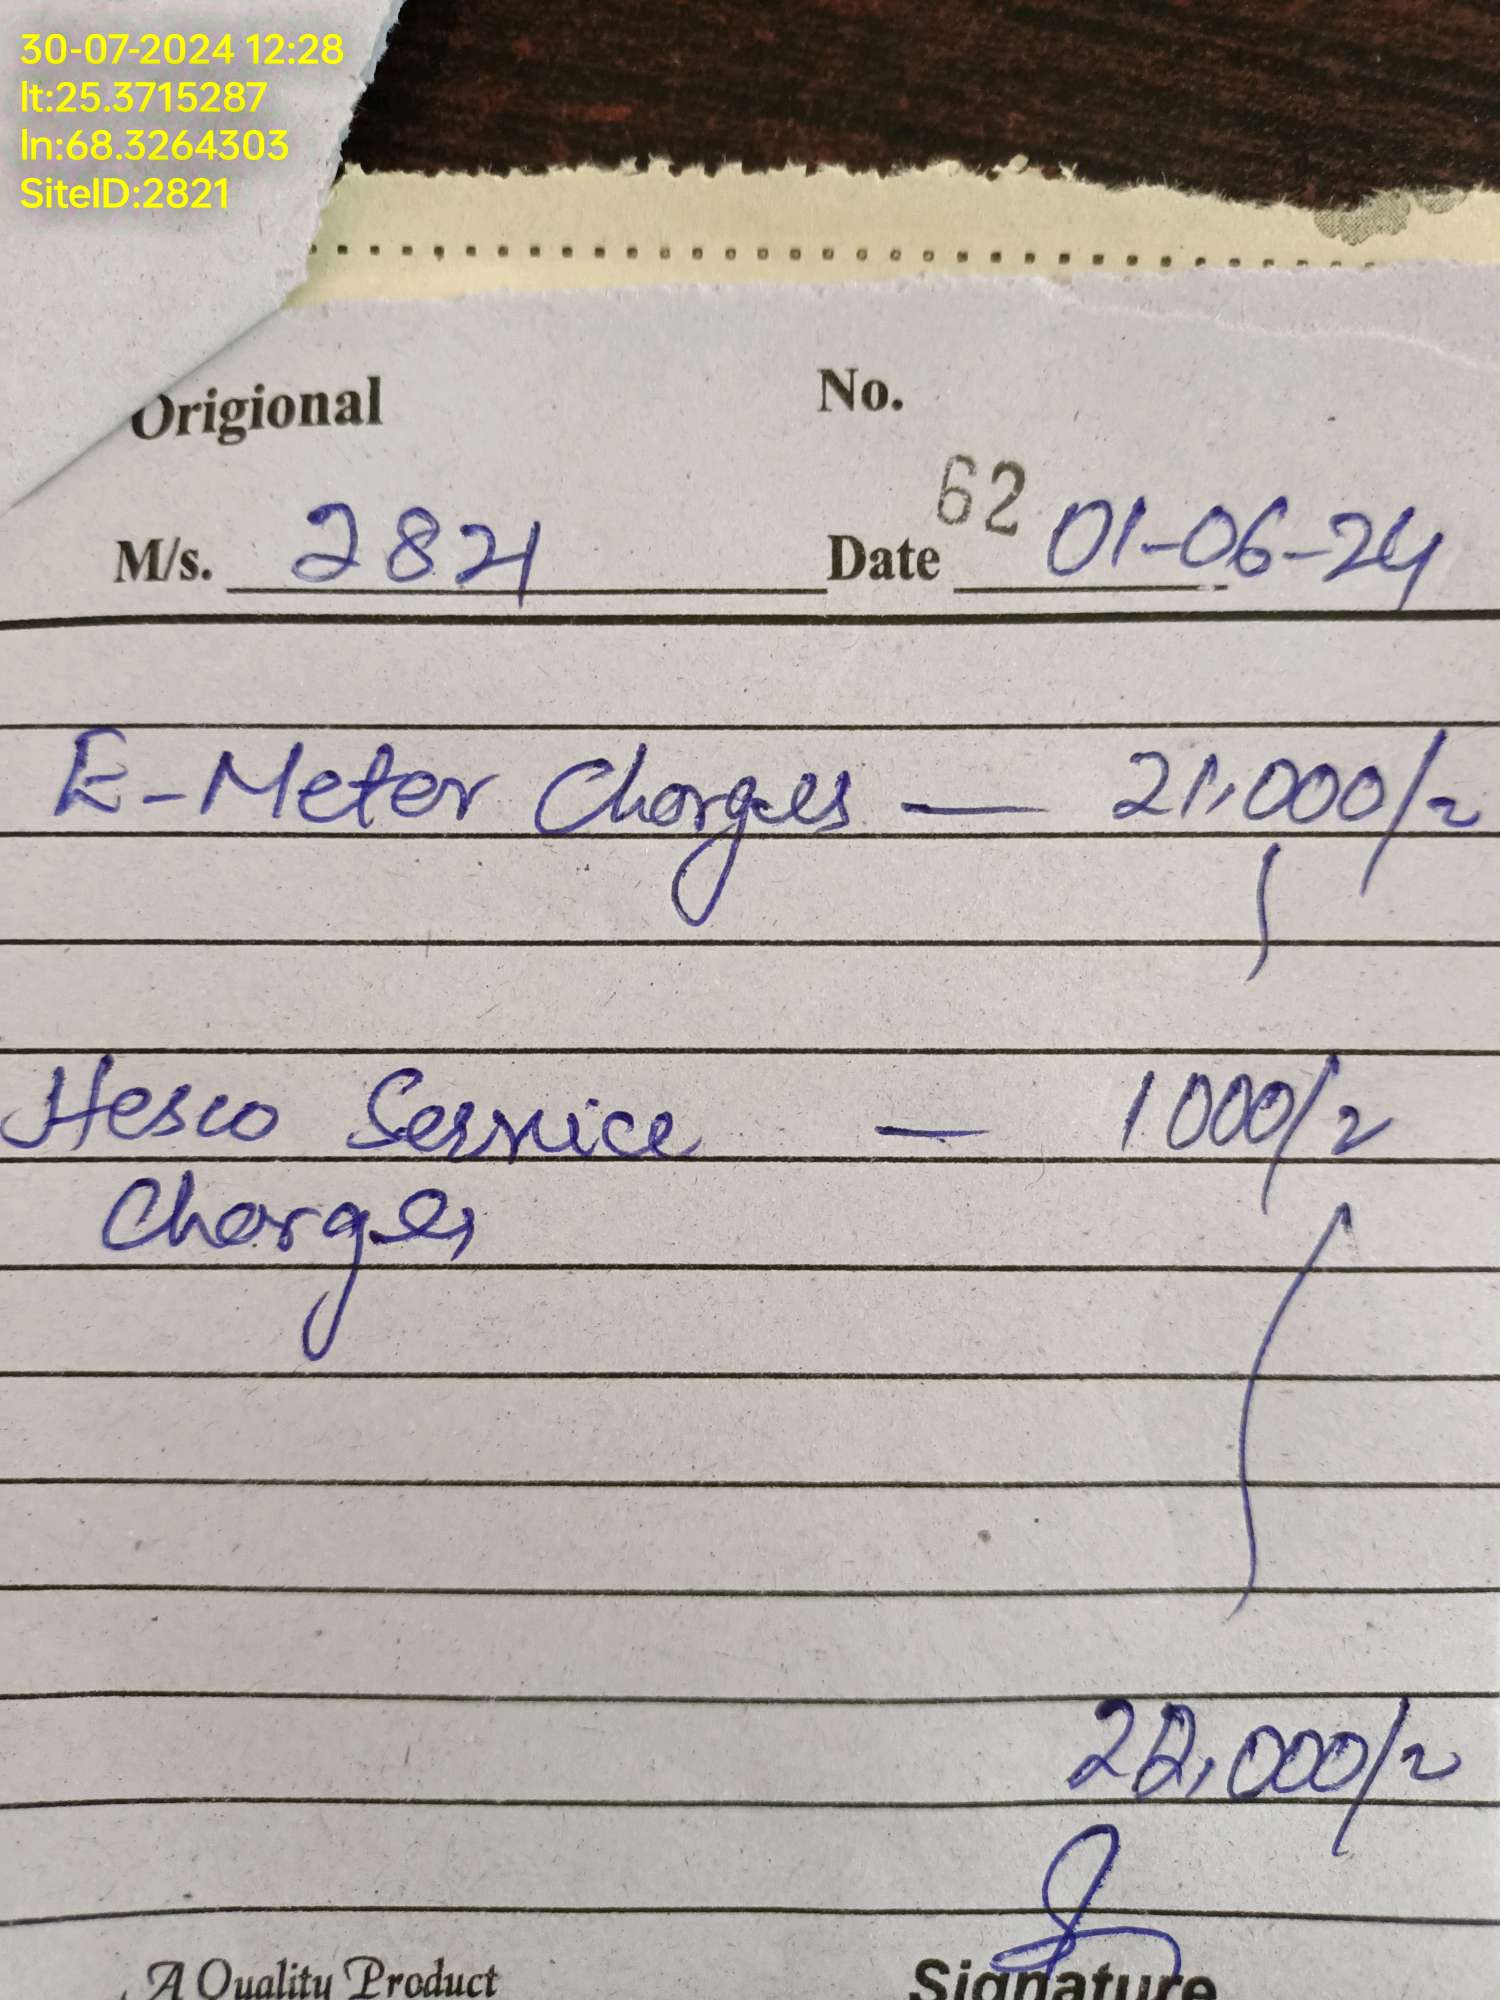 30-07-2024 12:28
lt:25.3715287
ln:68.3264303
SiteID:2821
Origional No.
62
M/s. 2821 Date 01-06-24
E-Meter Charges — 21,000/=
Hesco Service — 1000/=
Charges
22,000/=
A Quality Product Signature